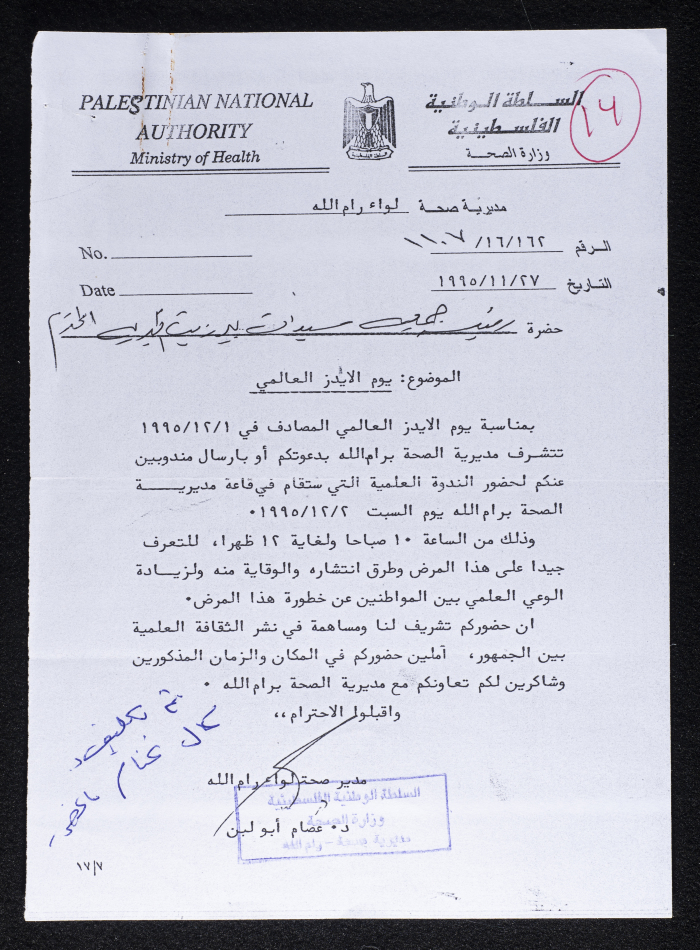 PALESTINIAN NATIONAL
AUTHORITY
Ministry of Health
السلطة الوطنية
الفلسطينية
وزارة الصحة
١٤
مديرية صحة لواء رام الله
No.
الرقم ١٦/١٦٢/ ١١٠٧
Date
التاريخ ١٩٩٥/١١/٢٧
حضرة رئيسة جمعية سيدات بيرزيت الخيرية المحترم
الموضوع: يوم الايدز العالمي
بمناسبة يوم الايدز العالمي المصادف في ١٩٩٥/١٢/١
تتشرف مديرية الصحة برام الله بدعوتكم أو بارسال مندوبين
عنكم لحضور الندوة العلمية التي ستقام في قاعة مديريــــة
الصحة برام الله يوم السبت ١٩٩٥/١٢/٢٠
وذلك من الساعة ١٠ صباحا ولغاية ١٢ ظهرا، للتعرف
جيدا على هذا المرض وطرق انتشاره والوقاية منه ولزيـــادة
الوعي العلمي بين المواطنين عن خطورة هذا المرض٠
ان حضوركم تشريف لنا ومساهمة في نشر الثقافة العلمية
بين الجمهور، آملين حضوركم في المكان والزمان المذكورين
وشاكرين لكم تعاونكم مع مديرية الصحة برام الله ٠
واقبلوا الاحترام،،
تم تكليف
غنام
مدير صحة لواء رام الله
د٠ عصام أبو لبن
السلطة الوطنية الفلسطينية
وزارة الصحة
مديرية صحة - رام الله
١٧/٧